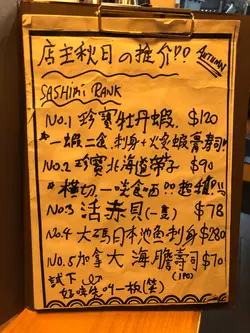 店主秋日の推介!!
AUTUMN
SASHIMI RANK
NO.1 珍寶牡丹蝦. $120
一蝦二食, 刺身+火炙蝦膏壽司
NO.2 珍寶北海道帶子 $90
橫切, 一啖食哂!! 超撻!!
NO.3 活赤貝(一隻) $78
NO.4 大碼日本池魚刺身 $280
NO.5 加拿大海膽壽司 $70
(1PC)
試下
好味先叫一板(笑)